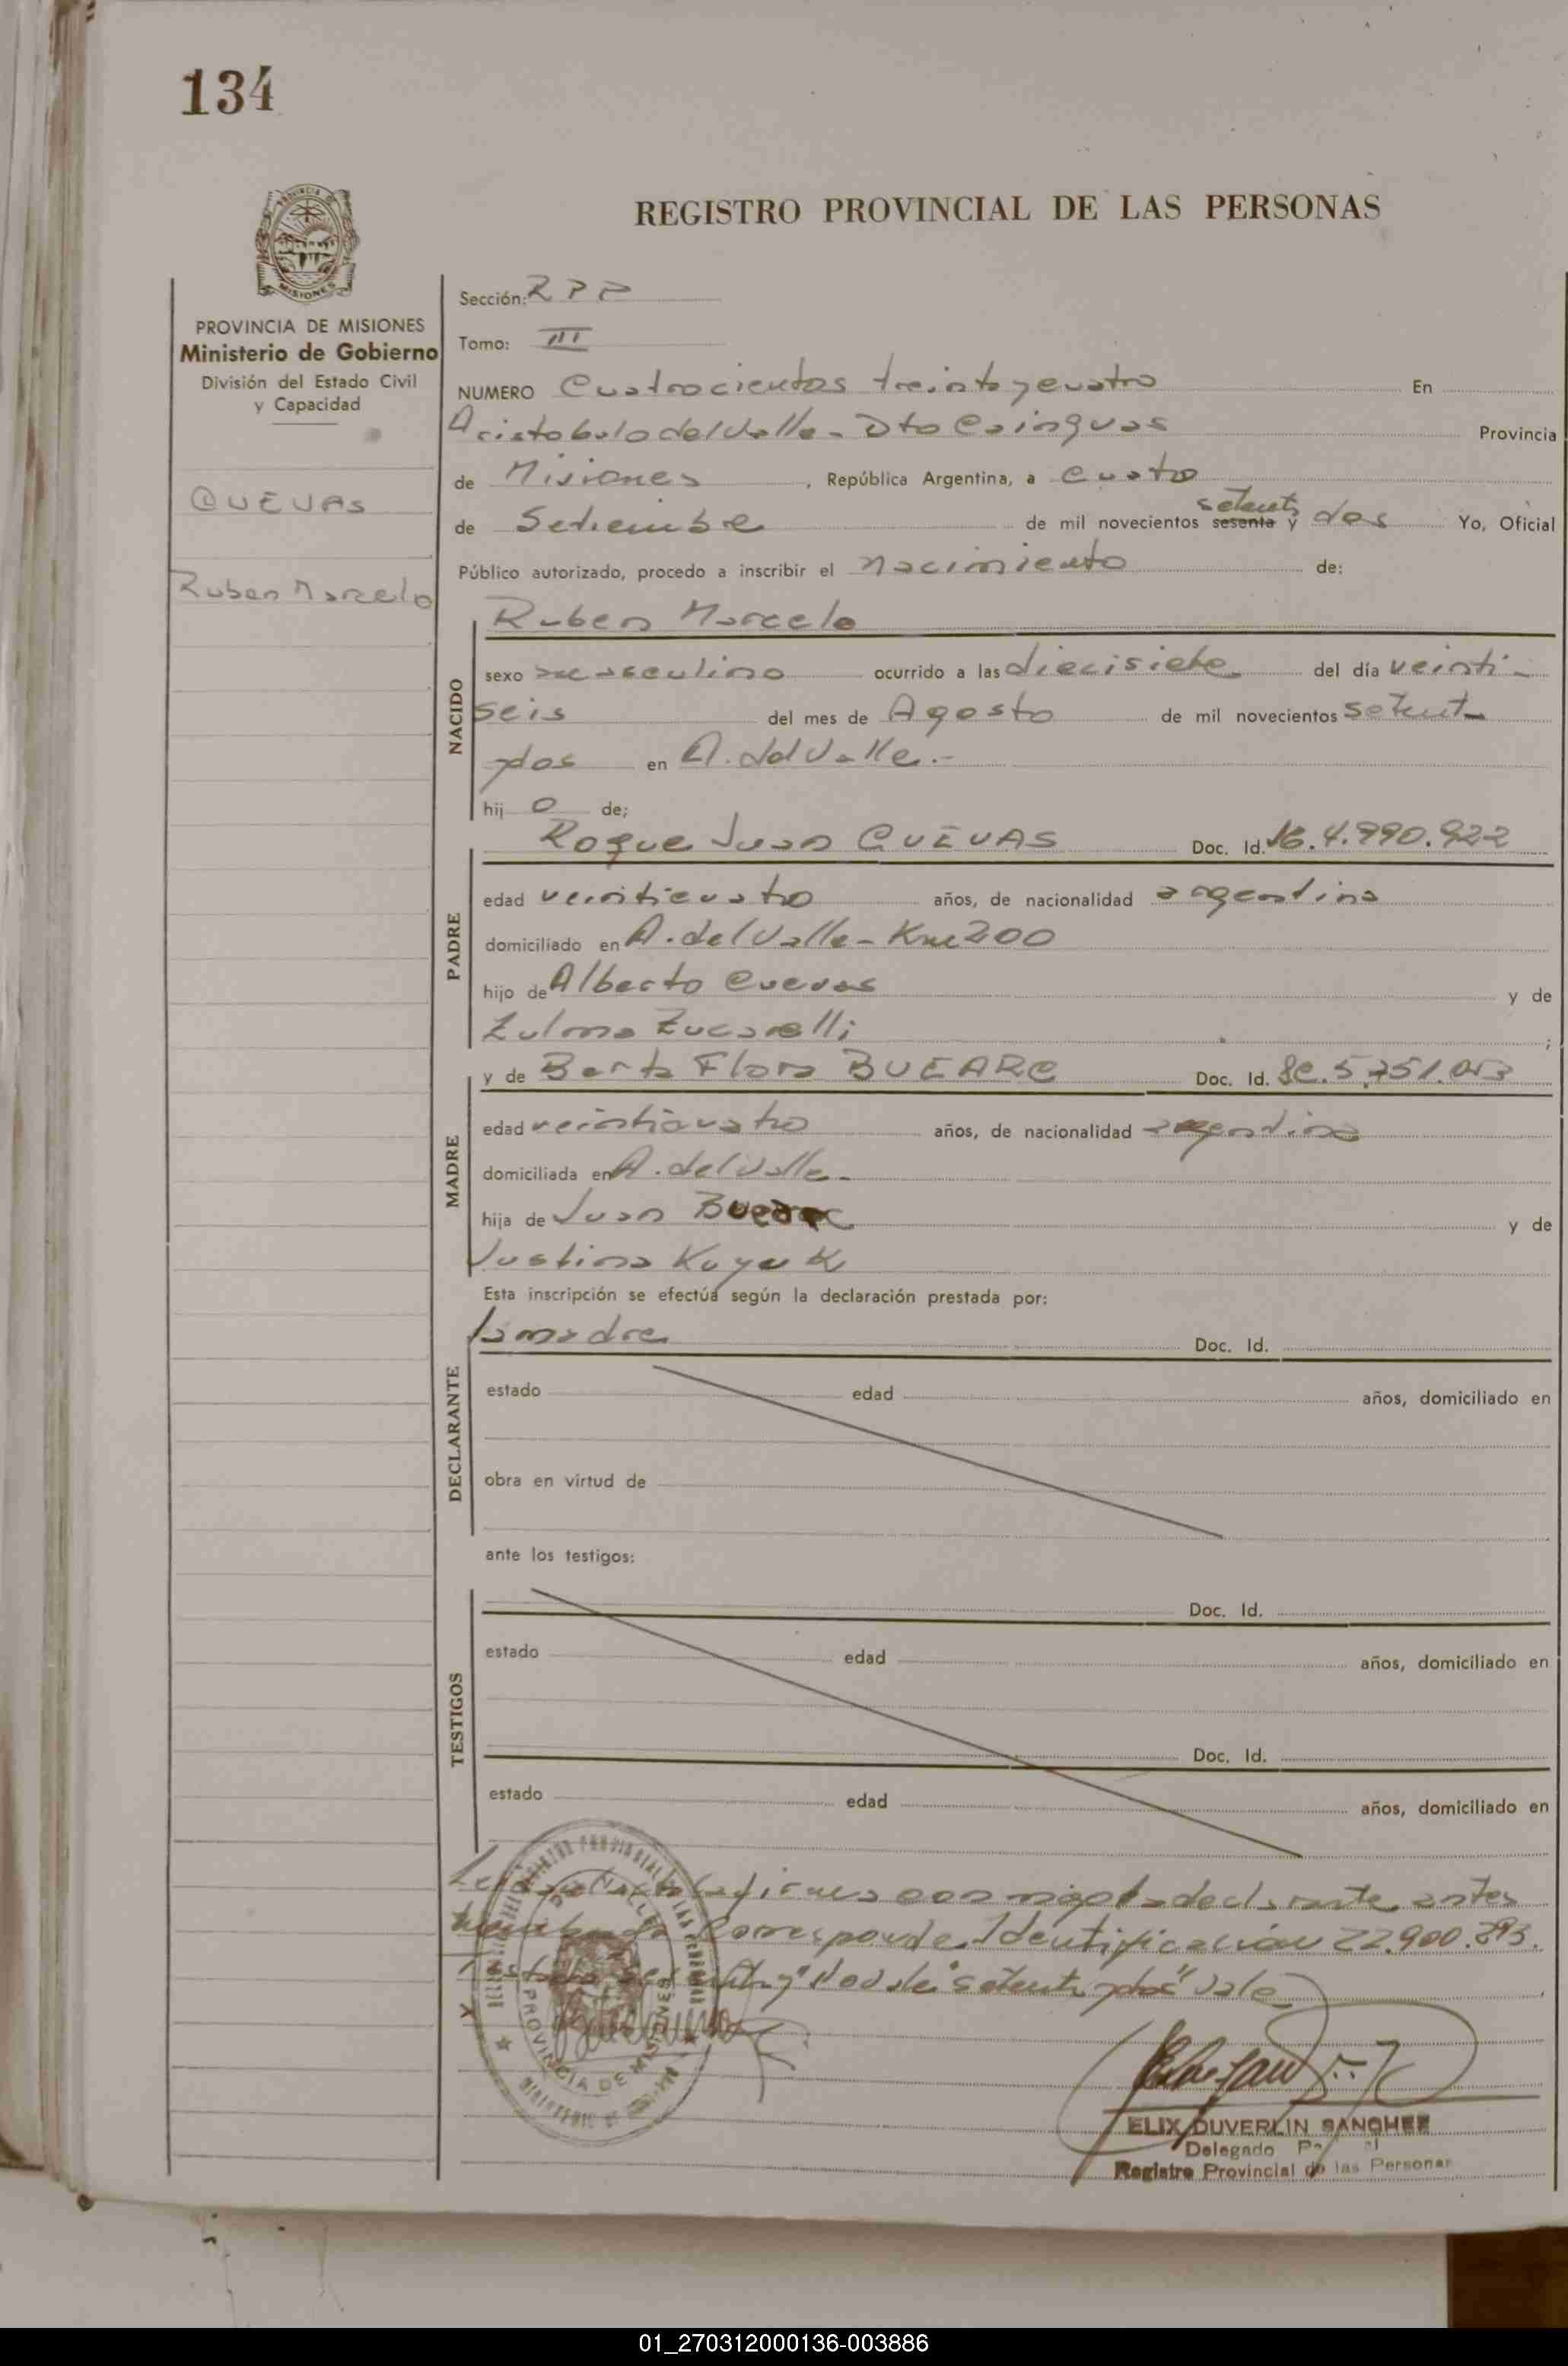 134
REGISTRO PROVINCIAL DE LAS PERSONAS
PROVINCIA DE MISIONES
Ministerio de Gobierno
División del Estado Civil
y Capacidad
CUEVAS
Ruben Marcelo
Sección: RPP
Tomo: III
NUMERO Cuatrocientos treinta y cuatro En
Aristobulo del Valle - Dto Cainguas Provincia
de Misiones, República Argentina, a cuatro
setenta
de Setiembre de mil novecientos sesenta y dos Yo, Oficial
Público autorizado, procedo a inscribir el nacimiento de:
Ruben Marcelo
NACIDO
sexo masculino ocurrido a las diecisiete del día veinti-
seis del mes de Agosto de mil novecientos setenta
y dos en A. del Valle.-
hij o de;
Roque Juan CUEVAS Doc. Id. 4.990.922
PADRE
edad veinticuatro años, de nacionalidad argentina
domiciliado en A. del Valle - Km 200
hijo de Alberto Cuevas y de
Zulma Zucarelli ;
y de Berta Flora BUEARC Doc. Id.
MADRE
edad veinticuatro años, de nacionalidad argentina
domiciliada en A. del Valle -
hija de Juan y de
Justina Kuyuk
Esta inscripción se efectúa según la declaración prestada por:
la madre Doc. Id.
DECLARANTE
estado edad años, domiciliado en
obra en virtud de
ante los testigos:
Doc. Id.
TESTIGOS
estado edad años, domiciliado en
Doc. Id.
estado edad años, domiciliado en
firma conmigo la declarante, antes
Corresponde Identificación 22.900.893.
"setenta y dos" vale
PROVINCIA DE MISIONES
ELIX DUVERLIN SANCHEZ
Delegado
Registro Provincial de las Personas
01_270312000136-003886